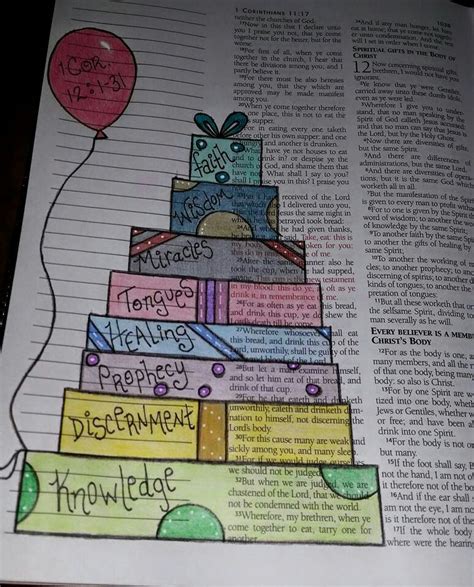 1 COR.
12:1-31
Faith
Wisdom
Miracles
Tongues
Healing
Prophecy
Discernment
Knowledge
1 CORINTHIANS 11:17
neither the churches of God.
17Now in this that I declare unto
you I praise you not, that ye come
together not for the better, but for the
worse.
18For first of all, when ye come
together in the church, I hear that
there be divisions among you; and I
partly believe it.
19For there must be also heresies
among you, that they which are
approved may be made manifest
among you.
20When ye come together therefore
one place, this is not to eat the
supper.
in eating every one taketh
before other his own supper; and one
hungry, and another is drunken.
have ye not houses to eat
and to drink in? or despise ye the
church of God, and shame them that
have not? What shall I say to you?
shall I praise you in this? I praise you
received of the Lord
I delivered unto you,
Jesus the same night in
he was betrayed took bread:
Take, eat: this is
my body, for you:
this do in remembrance of me.
same manner also he
took the cup, when he had supped,
in my blood: this do ye, as oft as ye
drink it, in remembrance of me.
26For as often as ye eat this bread,
and drink this cup, ye do shew
27Wherefore whosoever shall eat
this bread, and drink this cup of the
Lord, unworthily, shall be guilty of the
body and blood of the Lord.
28But let a man examine himself,
and so let him eat of that bread, and
drink of that cup.
29For he that eateth and drinketh
unworthily, eateth and drinketh
damnation to himself, not discerning the
Lord's body.
30For this cause many are weak and
sickly among you, and many sleep.
31For if we would judge ourselves,
we should not be judged.
32But when we are judged, we are
chastened of the Lord, that we should
not be condemned with the world.
33Wherefore, my brethren, when ye
come together to eat, tarry one for
another.
1036
34And if any man hunger, let him eat
condemnation. And the rest
will I set in order when I come.
SPIRITUAL GIFTS IN THE BODY OF
CHRIST
12 Now concerning spiritual gifts,
brethren, I would not have you
ignorant.
2Ye know that ye were Gentiles,
carried away unto these dumb idols,
even as ye were led.
3Wherefore I give you to
understand, that no man speaking by the
Spirit of God calleth Jesus accursed:
and that no man can say that Jesus is
the Lord, but by the Holy Ghost.
4Now there are diversities of gifts,
but the same Spirit.
5And there are differences of
administrations, but the same Lord.
6And there are diversities of
operations, but it is the same God which
worketh all in all.
7But the manifestation of the Spirit
is given to every man to profit withal.
8For to one is given by the Spirit the
word of wisdom; to another the word
of knowledge by the same Spirit;
9To another faith by the same Spirit;
to another the gifts of healing by the
same Spirit;
10To another the working of
miracles; to another prophecy; to another
discerning of spirits; to another divers
kinds of tongues; to another the
interpretation of tongues:
11But all these worketh that one and
the selfsame Spirit, dividing to every
man severally as he will.
EVERY BELIEVER IS A MEMBER OF
CHRIST'S BODY
12For as the body is one, and hath
many members, and all the members
of that one body, being many, are one
body: so also is Christ.
13For by one Spirit are we all
baptized into one body, whether we be
Jews or Gentiles, whether we be bond
or free; and have been all made to
drink into one Spirit.
14For the body is not one member,
but many.
15If the foot shall say, Because I am
not the hand, I am not of the body; is
it therefore not of the body?
16And if the ear shall say, Because I
am not the eye, I am not of the body;
is it therefore not of the body?
17If the whole body were an eye,